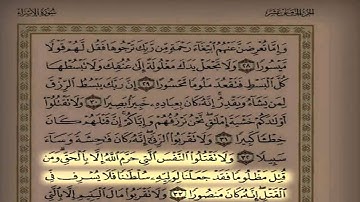 الجزء الخامس عشر
سورة الإسراء
وَإِمَّا تُعْرِضَنَّ عَنْهُمُ ابْتِغَاءَ رَحْمَةٍ مِنْ رَبِّكَ تَرْجُوهَا فَقُلْ لَهُمْ قَوْلًا
مَيْسُورًا ٢٨ وَلَا تَجْعَلْ يَدَكَ مَغْلُولَةً إِلَى عُنُقِكَ وَلَا تَبْسُطْهَا
كُلَّ الْبَسْطِ فَتَقْعُدَ مَلُومًا مَحْسُورًا ٢٩ إِنَّ رَبَّكَ يَبْسُطُ الرِّزْقَ
لِمَنْ يَشَاءُ وَيَقْدِرُ إِنَّهُ كَانَ بِعِبَادِهِ خَبِيرًا بَصِيرًا ٣٠ وَلَا تَقْتُلُوا
أَوْلَادَكُمْ خَشْيَةَ إِمْلَاقٍ نَحْنُ نَرْزُقُهُمْ وَإِيَّاكُمْ إِنَّ قَتْلَهُمْ كَانَ
خِطْئًا كَبِيرًا ٣١ وَلَا تَقْرَبُوا الزِّنَى إِنَّهُ كَانَ فَاحِشَةً وَسَاءَ
سَبِيلًا ٣٢ وَلَا تَقْتُلُوا النَّفْسَ الَّتِي حَرَّمَ اللَّهُ إِلَّا بِالْحَقِّ وَمَنْ
قُتِلَ مَظْلُومًا فَقَدْ جَعَلْنَا لِوَلِيِّهِ سُلْطَانًا فَلَا يُسْرِفْ فِي
الْقَتْلِ إِنَّهُ كَانَ مَنْصُورًا ٣٣ وَلَا تَقْرَبُوا مَالَ الْيَتِيمِ إِلَّا بِالَّتِي